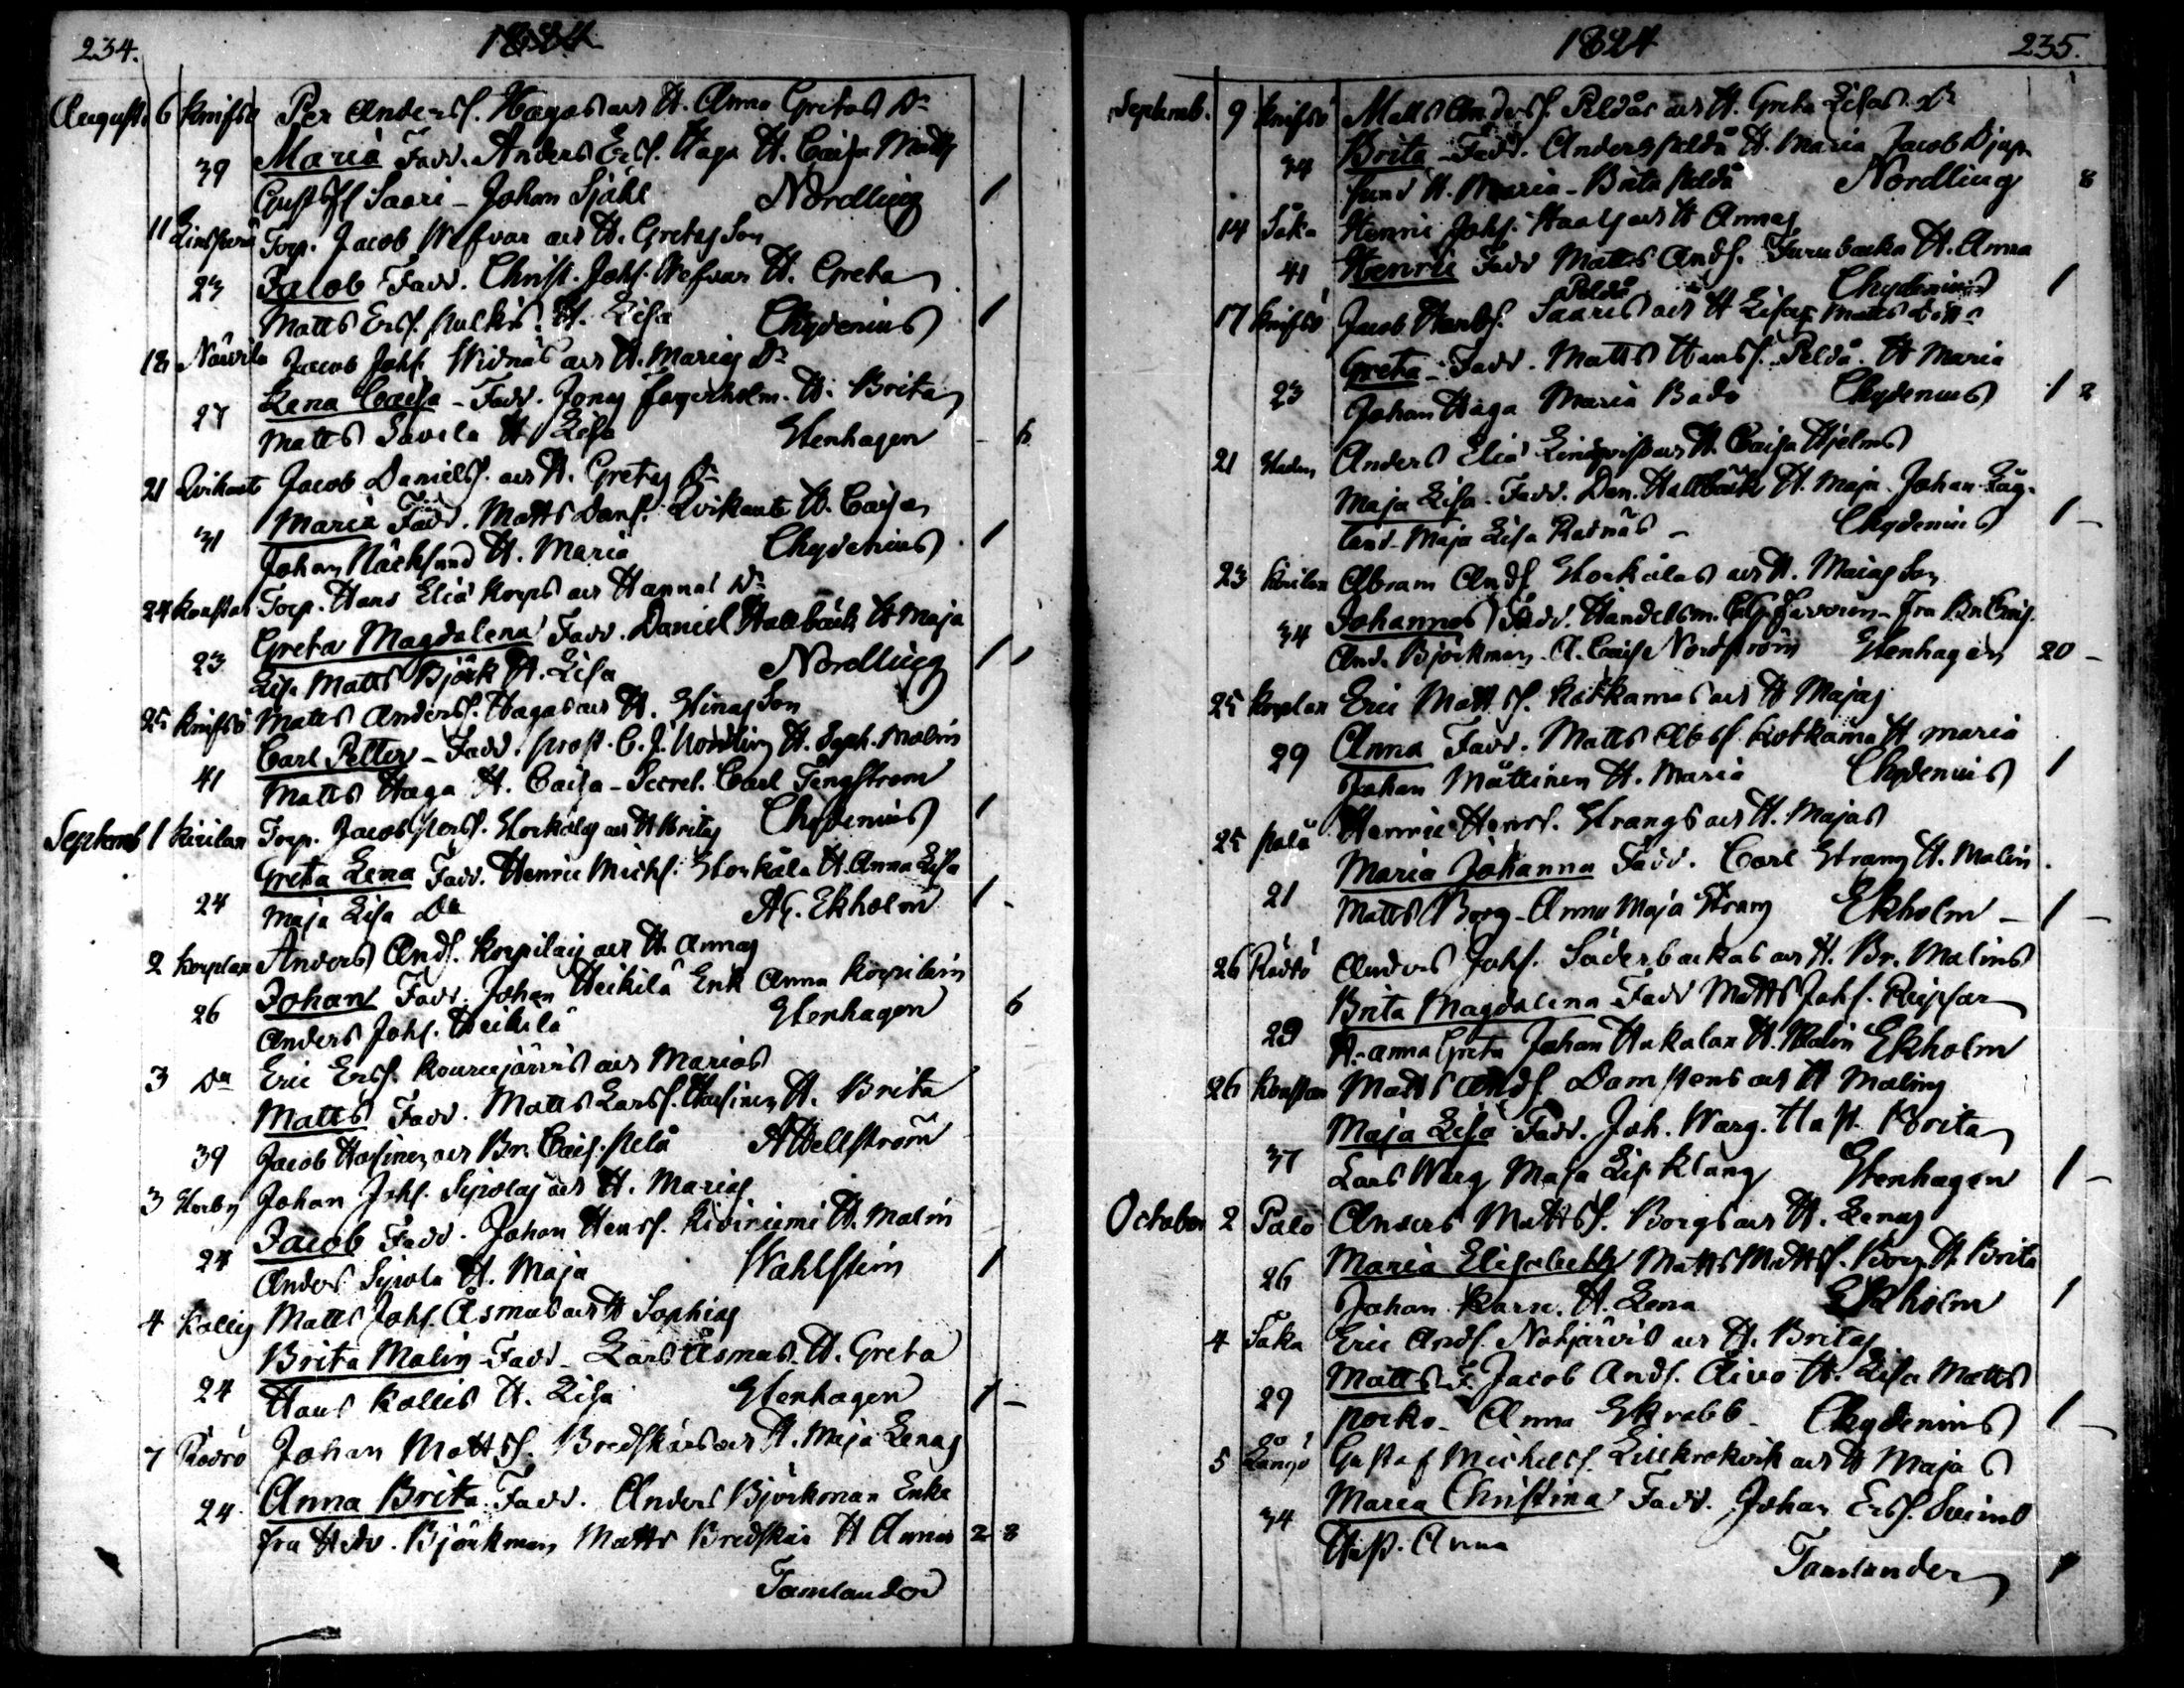 234. 1824
August 6 Knifsö Per Anderss. Hagas och H. Anna Gretas Dr
39 Maria Fadd. Anders Erss. Haga H. Caisa Matts
Saari - Johan Sjöhl Nordling 1
11 Torp. Jacob Wefvar och H. Gretas Son
23 Jacob Fadd. Christ. Johs. Wefvar H. Greta
Matts Erss. H. Lisa Chydenius 1
18 Jacob Johs. Widnäs och H. Marias Dr
27 Lena Caisa - Fadd. Jonas Fagerholm. H. Brita
Matts Savela H. Lisa Stenhagen - 6
21 Qvikant Jacob Danielss. och H. Gretas Dr
31 Maria Fadd. Matts Dans. Qvikant H. Caisa
Johan Näcksund H. Maria Chydenius 1
24 Torp. Hans Eliæ Korps och Hannas Dr
23 Greta Magdalena Fadd. Daniel Hallbäck H Maja
Lisa Matts Björk H. Lisa Nordling 1
25 Knifsö Matts Anderss. Hagas och H. Stinas Son
Carl Petter - Fadd. Prost. C. J. Nordling H. Soph. Malin
41 Matts Haga H. Caisa - Secret. Carl Tengstrom
Chydenius 1
Septemb 1 Kirilax Torp. Jacob Perss. Storkåls och H Britas
Greta Lena Fadd. Henric Michs. Storkåla H. Anna Lisa
24 Maja Lisa Dr A G. Ekholm 1 -
2 Korplax Anders Ands. Korpilax och H. Annas
26 Johan Fadd. Johan Heikilä Enk Anna Korpilax
Anders Johs. Heikilä Stenhagen 6
3 Do Eric Erss. Kourujärvis och Marias
Matts Fadd. Matts Larss. Hasinen H. Brita
39 Jacob Hasinen och Br. Cais. A Wellström
3 Storby Johan Johs. Sipolas och H. Marias
24 Jacob Fadd. Johan Henss. Kiviniemi H. Malin
Anders Sipola H. Maja Wahlstein 1
4 Kolly Matts Johs. Åsmus och H Sophias
Brita Malin - Fadd - Lars Åsmus. H. Greta
24 Hans Kallis H. Lisa Stenhagen 1 -
7 Rödsö Johan Mattss. Bredskärs och H. Maja Lenas
24 Anna Brita. Fadd. Anders Björkman Enka
fru Björkman Matts Bredskär H Anna 2 8
Tamlander
1824 235.
Septemb. 9 Knifsö Matts Anderss. Peldås och H. Greta Lisas Dr
34 Brita - Fadd. Anders Peldå H. Maria Jacob Djup-
sund H. Maria - Brita Peldå Nordling 8
14 Såka Henric Johs. Haals och H Annas
41 Henric Fadd Matts Ands. Furubacka H. Anna
Chydenius 1
Peldå
17 Knifsö Jacob Saaris och H Lisas
Greta - Fadd. Matts Hanss. Peldå. H Maria
23 Johan Haga Maria Chydenius 1 2
21 Staden Anders Eliæ Lindqvist och H. Caisa Hjelms
Maja Lisa. Fadd. Dan. Hallbäck H. Maja. Johan Läg-
land - Maja Lisa Rudnäs - Chydenius 1 -
23 Kirilax Abram Ands. Storkålas och H. Majas Son
34 Johannes Fadd. Handelsm. Favorin - Fru
And. Björkman - A. Caisa Nordström Stenhagen 20 -
25 Korplax Eric Matss. Kotkamas och H Majas
29 Anna Fadd. Matts Abss. Kotkama H Maria
Johan Måttinen H. Maria Chydenius 1
25 Palå Henric Henss. Strangs och H. Majas
Maria Johanna Fadd. Carl Strang H. Malin.
21 Matts Borg - Anna Maja Strang Ekholm - 1 -
26 Rödsö Anders Johs. Söderbackas och H. Br. Malins
Brita Magdalena Fadd Matts Johs. Ripsar
29 H. Anna Greta Johan Hakalax H. Malin Ekholm
26 Matts Ands. Damstens och H Malins
Maja Lisa Fadd. Joh. Warg. Hust. Brita
37 Lars Warg Maja Lis. Klang Stenhagen 1 -
October 2 Palo Anders Mattss. Borgs och H. Lenas
26 Maria Elisabeth Matts Mattss. Borg H. Brita
Johan H. Lena Ekholm 1
4 Såka Eric Ands. Nätjärvis och H. Britas
Matts F. Jacob Ands. Aivo H. Lisa Matts
29 Porko - Anna Skrabb - Chydenius 1 -
5 Långö Gustaf Michelss. Lillkrokvik och H Majas
34 Maria Christina Fadd. Johan Erss.
Hust. Anna
Tamlander 1